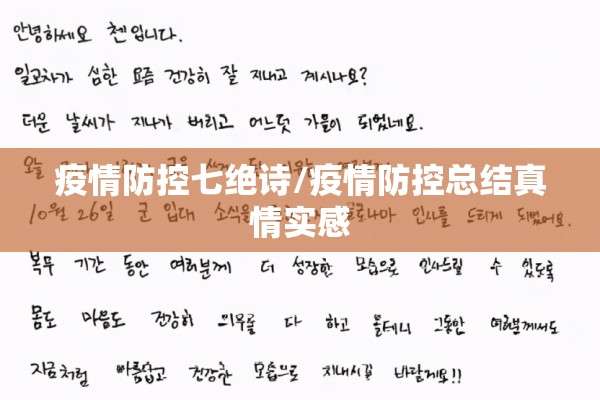 안녕하세요 첸입니다.
일교차가 심한 요즘 건강히 잘 지내고 계시나요?
더운 날씨가 지나가 버리고 어느덧 가을이 되었네요.
오늘
疫情防控七绝诗/疫情防控总结真
情实感
10월 26일 군 입대 소식을 인사를 드리게 되었어요.
복무 기간 동안 여러분께 더 성장한 모습으로 인사드릴 수 있도록
몸도 마음도 건강히 의무를 다 하고 올테니 그동안 여러분께서도
지금처럼 아름답고 건강한 모습으로 지내시길 바랄게요!!